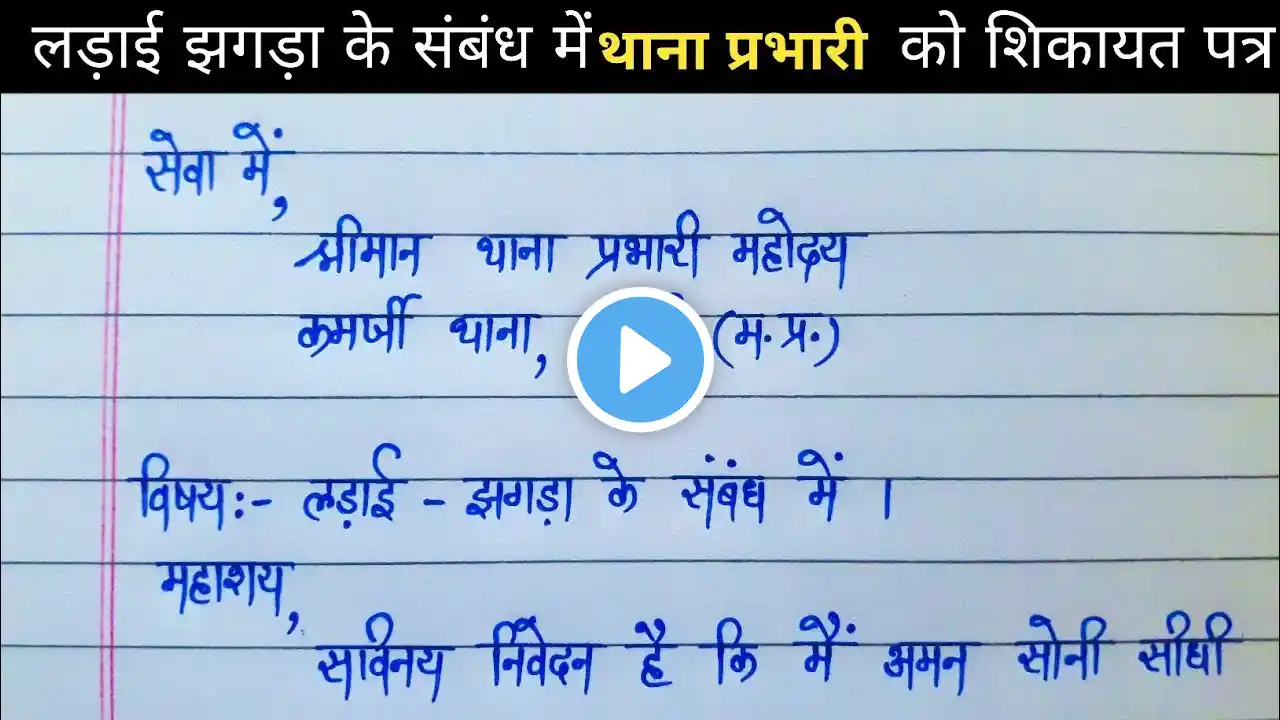 लड़ाई झगड़ा के संबंध में थाना प्रभारी को शिकायत पत्र
सेवा में,
श्रीमान थाना प्रभारी महोदय
कमर्जी थाना, (म.प्र.)
विषय:- लड़ाई - झगड़ा के संबंध में ।
महाशय,
सविनय निवेदन है कि मैं अमन सोनी सीधी